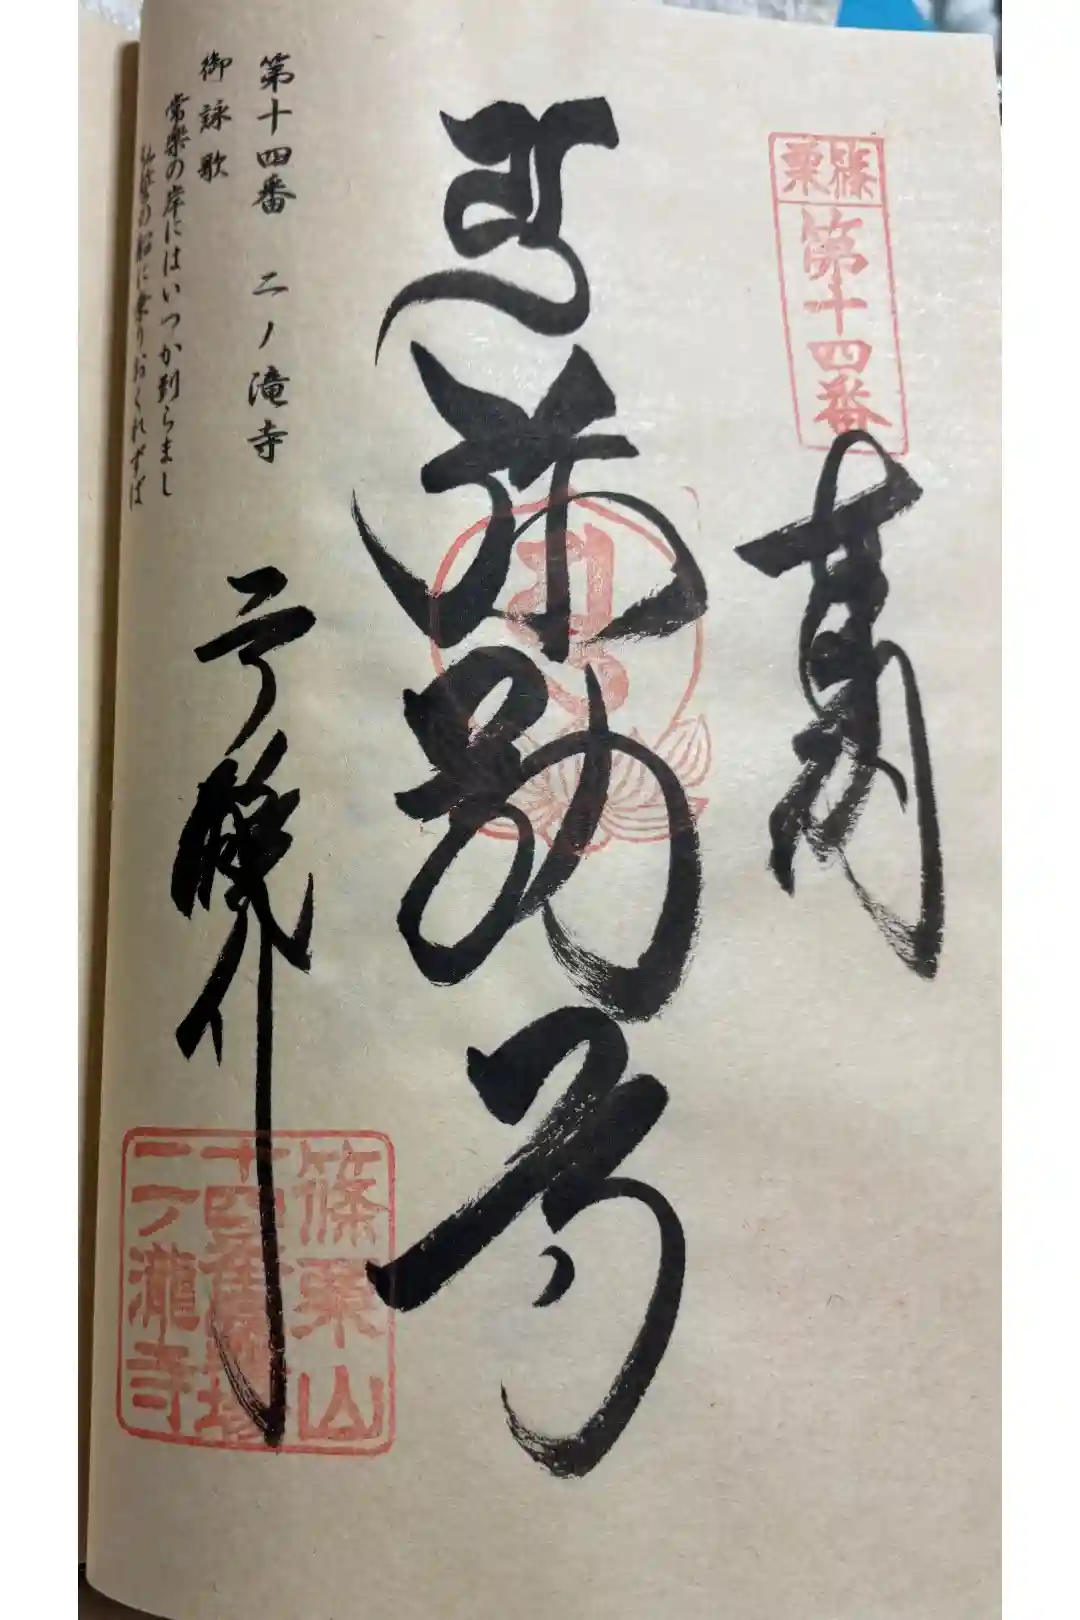 篠栗
第十四番
奉
弥勒尊
篠栗山
十四番霊場
二ノ瀧寺
第十四番 二ノ滝寺
御詠歌
常楽の岸にはいつか到らまし
弘誓の船に乗りおくれずば